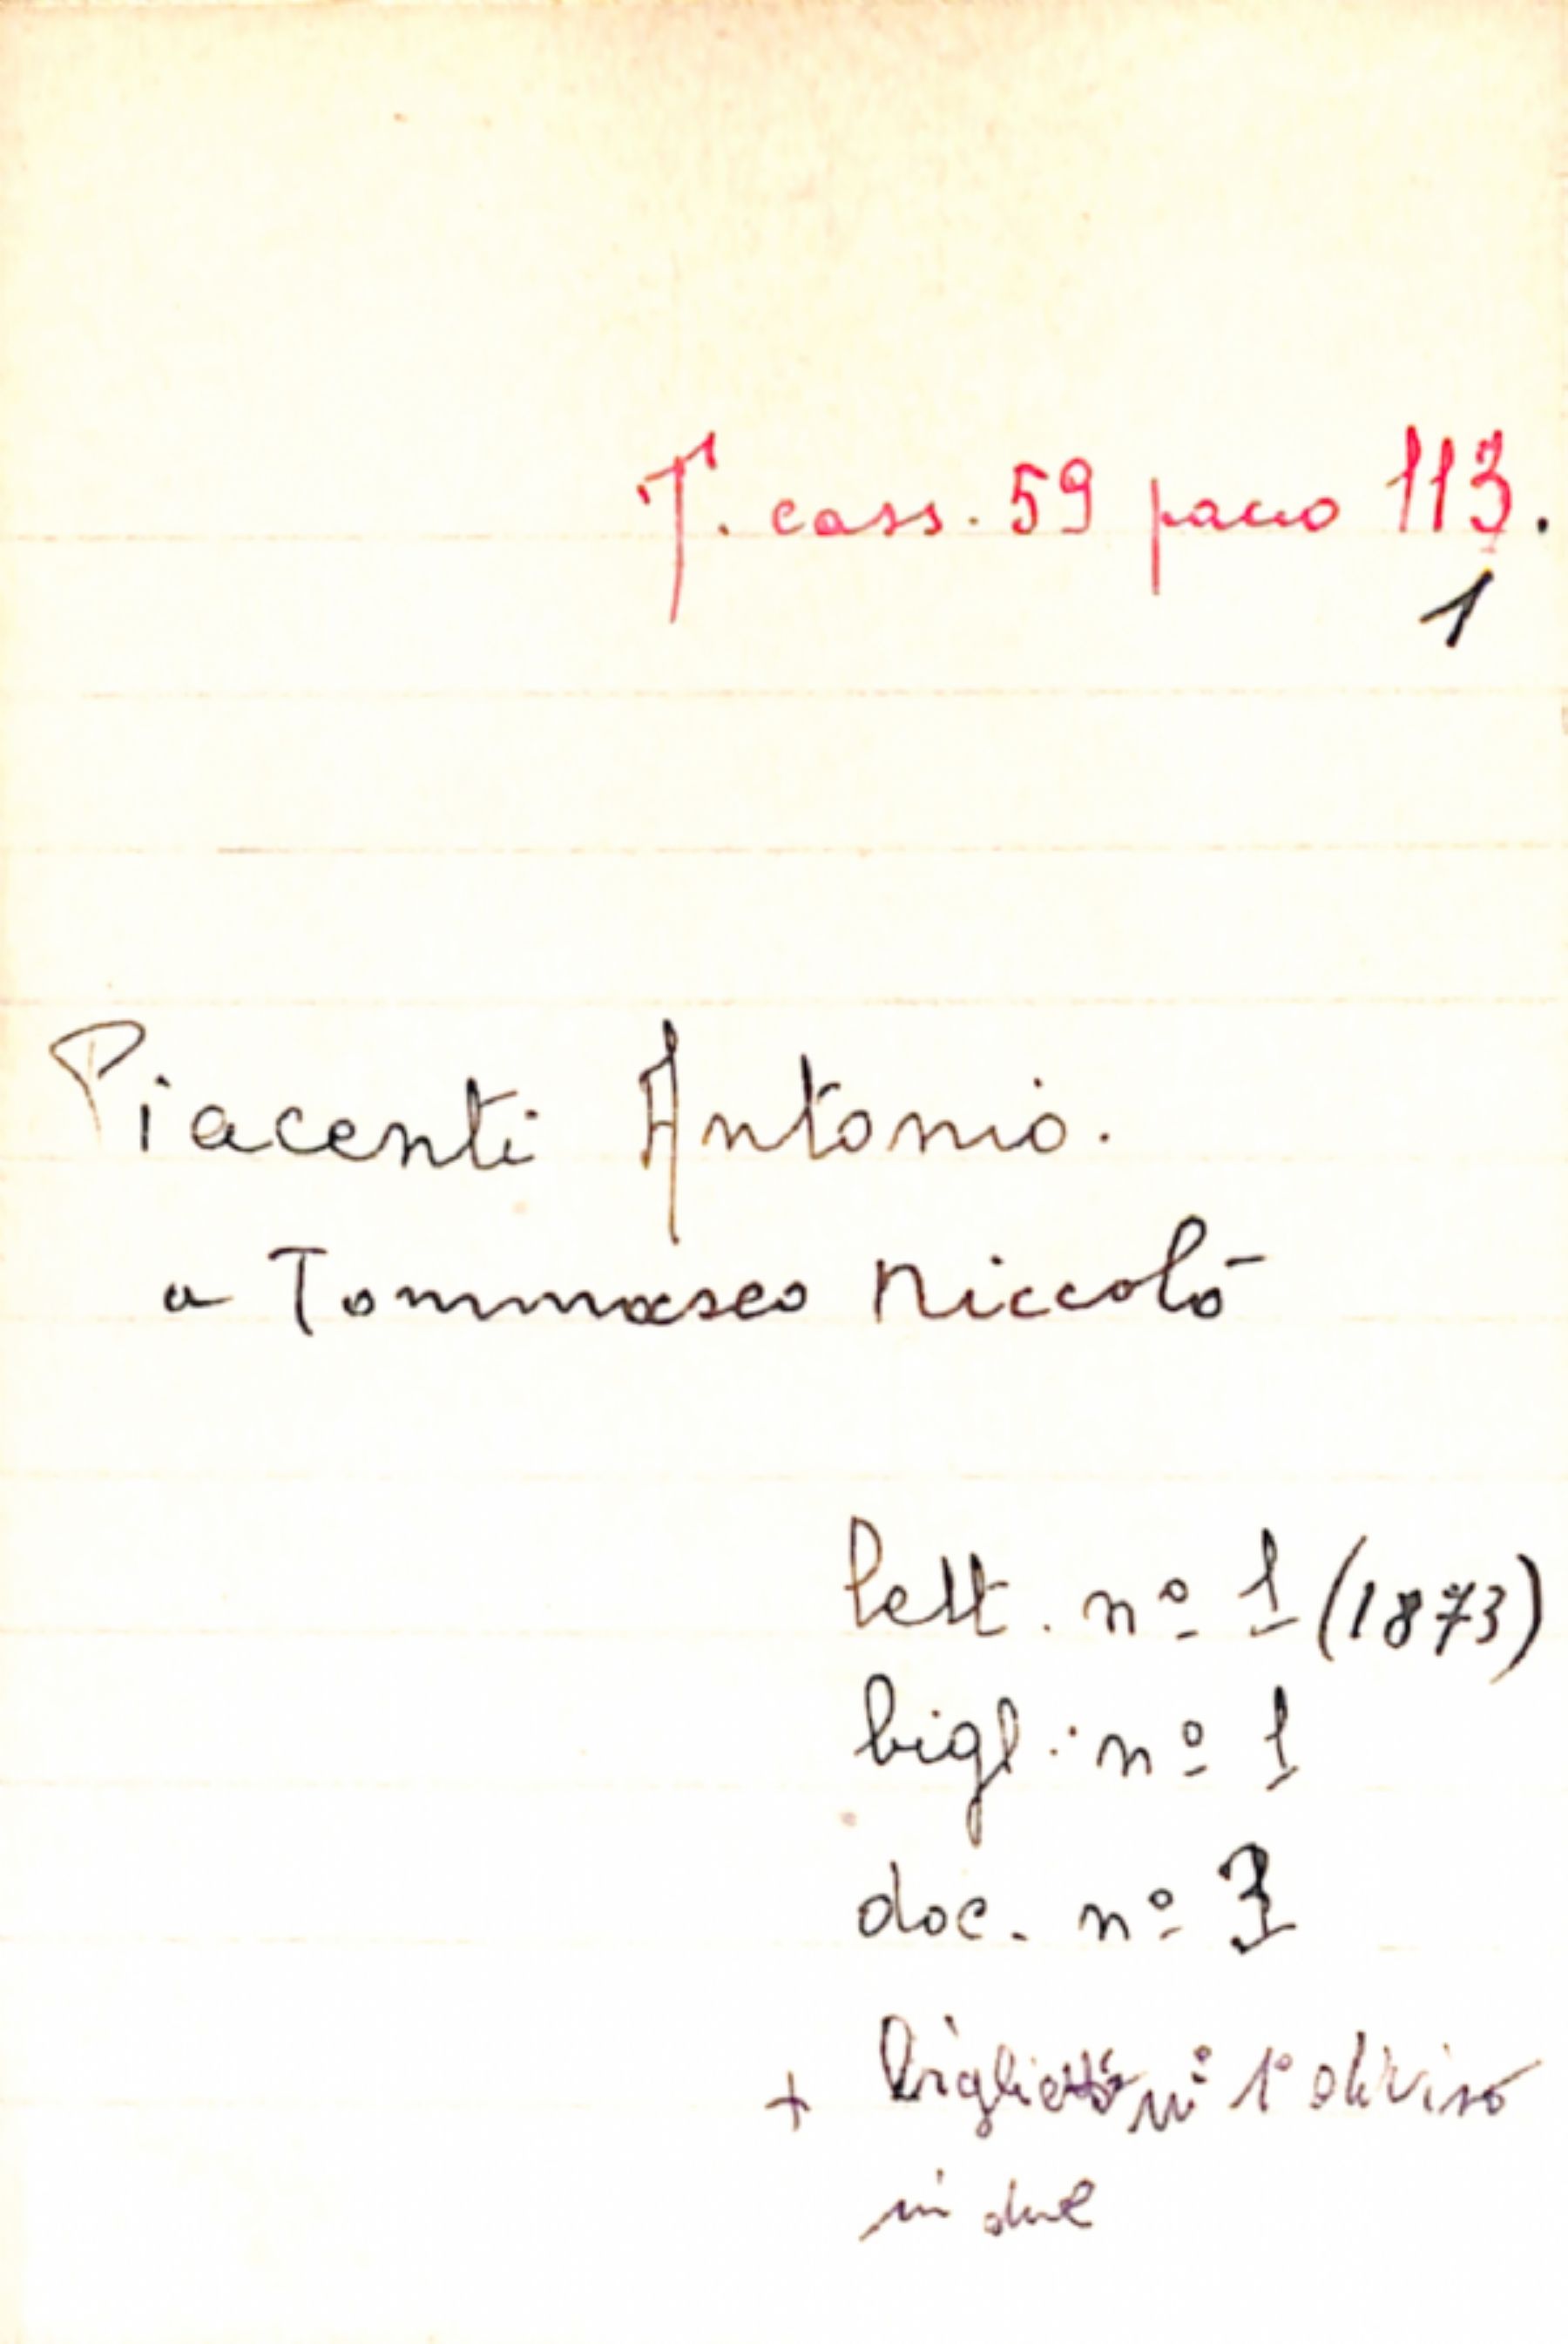 T. cass. 59 pacco 113.
1
Piacenti Antonio.
a Tommaseo Niccolò
lett. nº 1 (1873)
bigl. nº 1
doc. nº
+ biglietto nº 1º diviso
in due